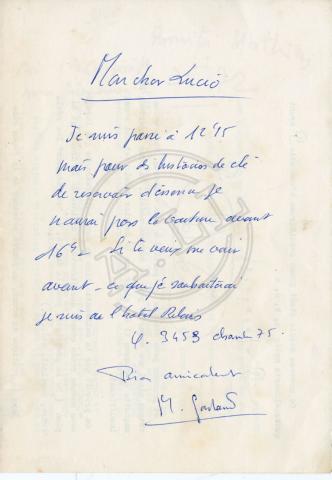 Mon cher Lucio
Je suis passé à 12h15
mais pour des histoires de clé
de reservoir d'essence je
n'aurai pas la voiture avant
16h - Si tu veux me voir
avant - ce que je souhaiterai
je suis de l'hotel Relais
3453 chambre 75.
Bien amicalement
M.